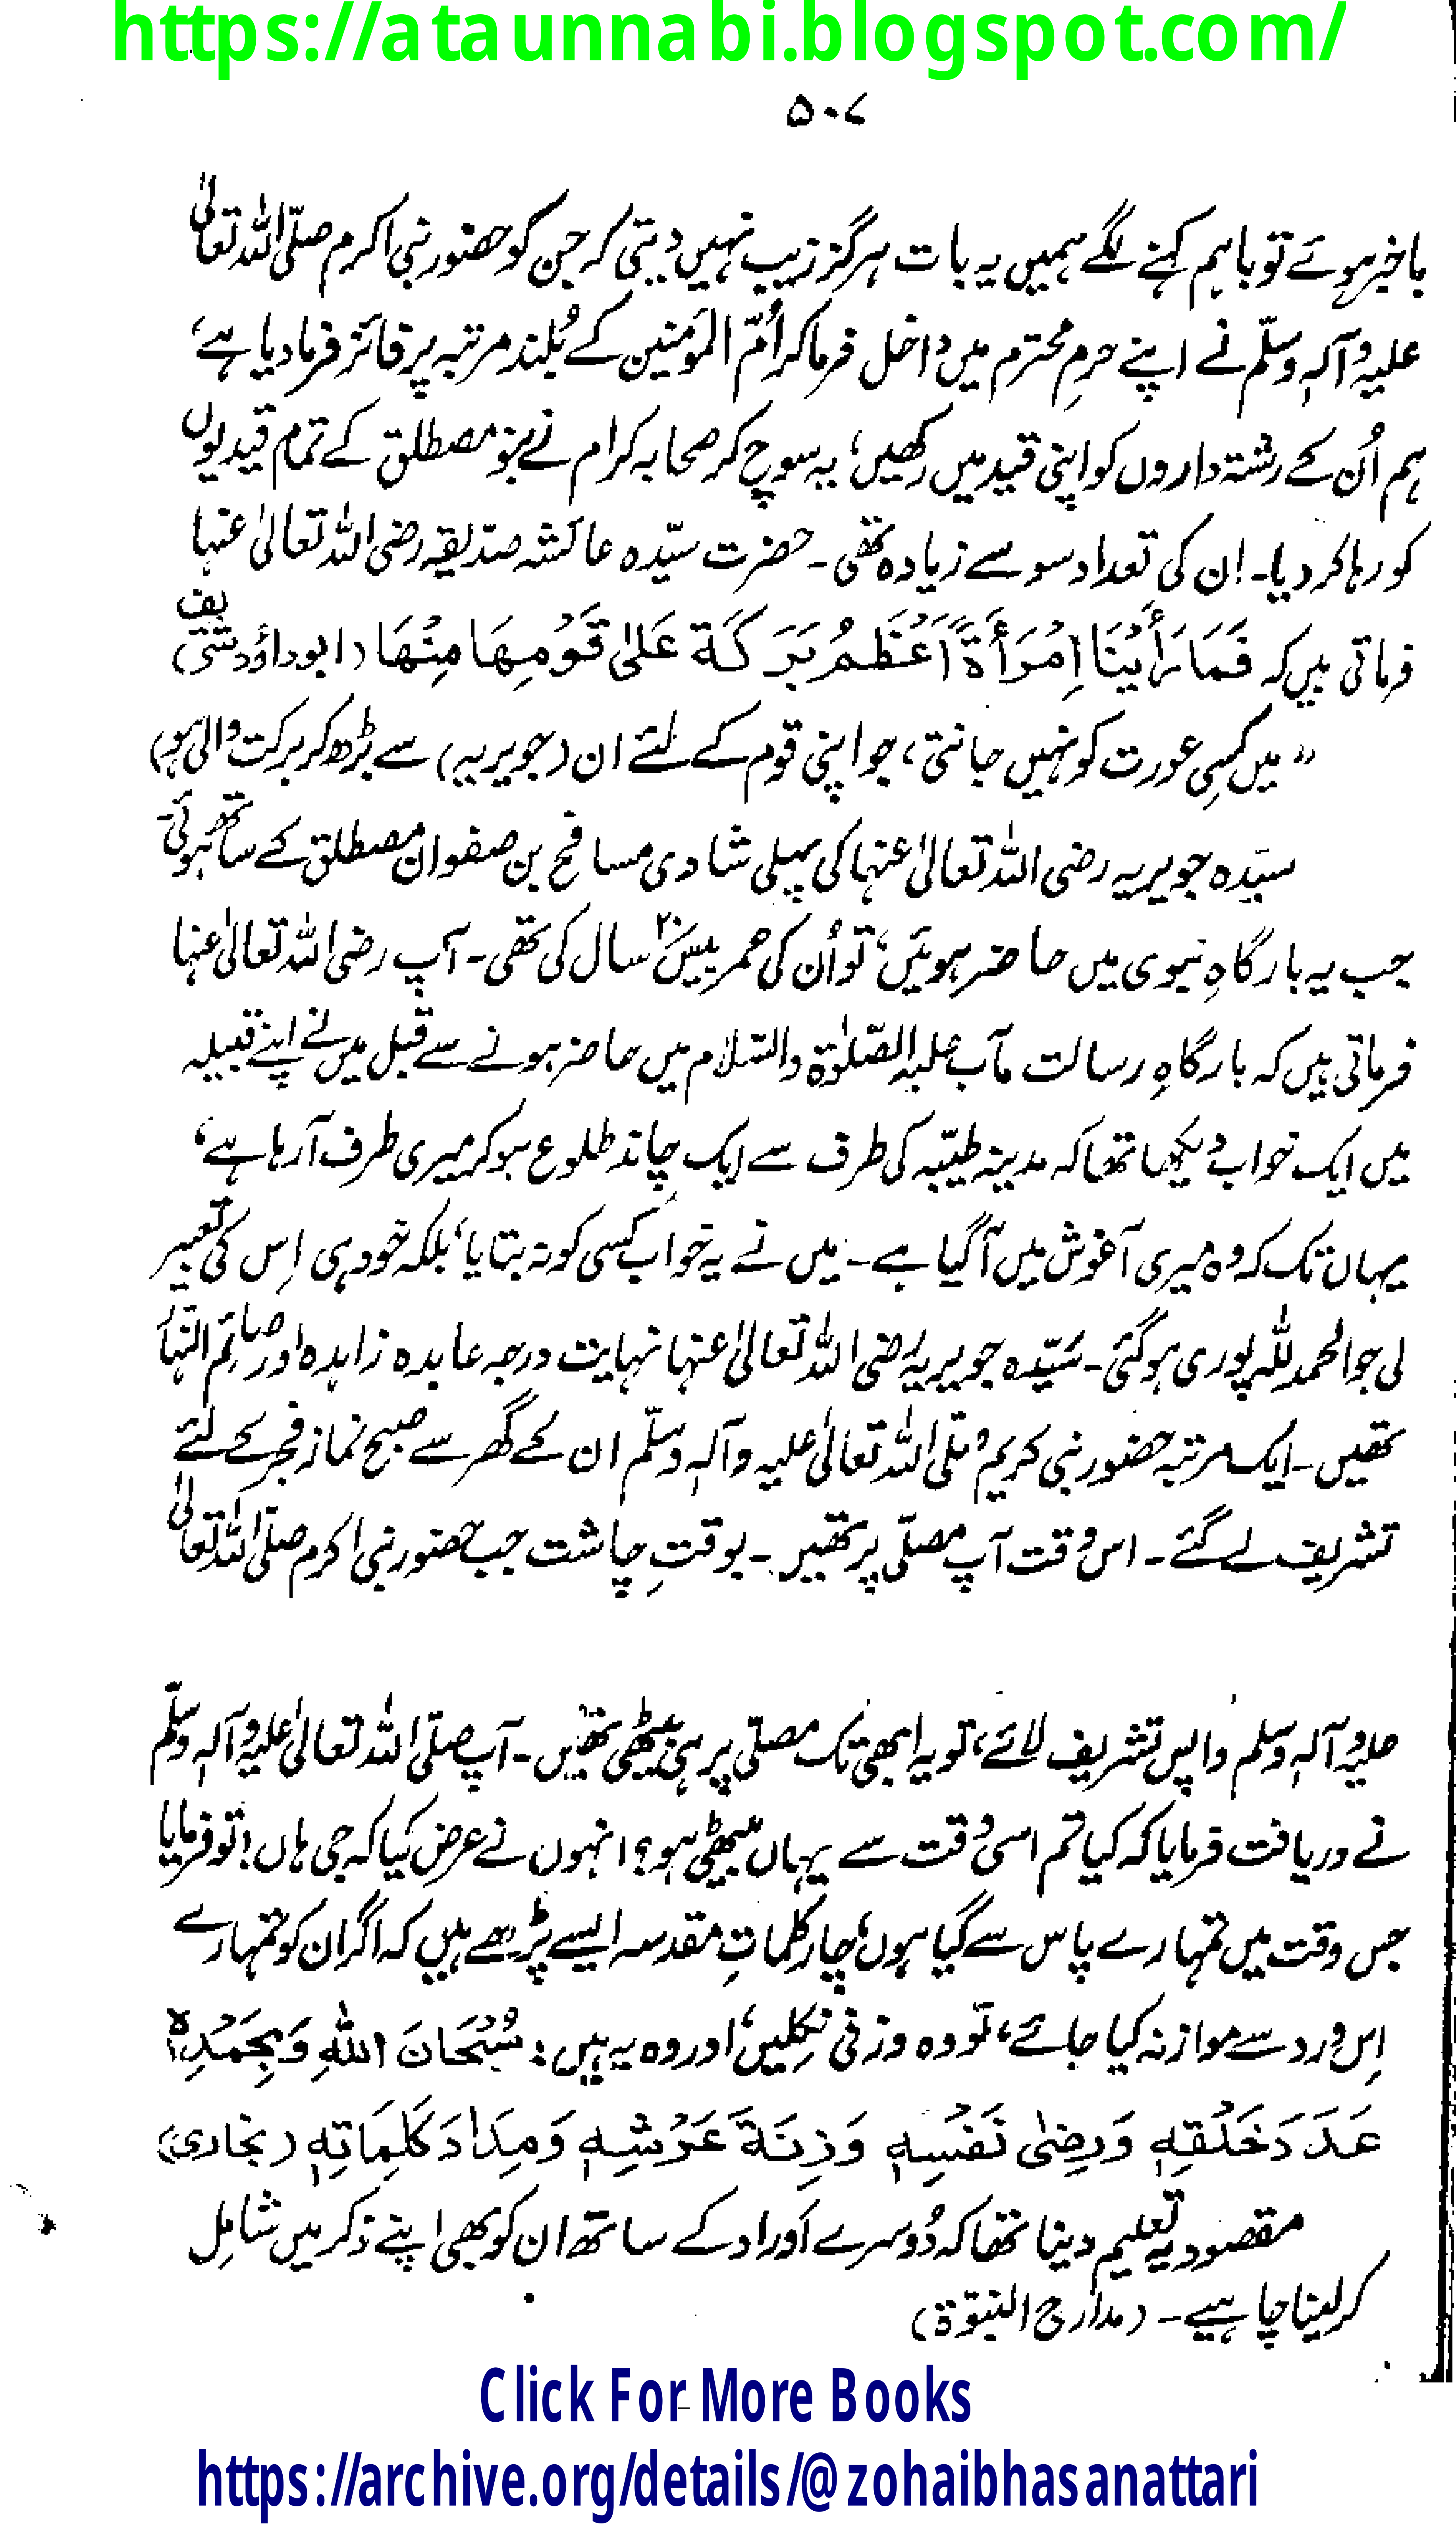 https://ataunnabi.blogspot.com/
۵۰۷
باخبر ہوئے تو باہم کہنے لگے ہمیں یہ بات ہرگز زیب نہیں دیتی کہ جن کو حضور نبی اکرم صلّی اللہ تعالیٰ
علیہ وآلہٖ وسلّم نے اپنے حرمِ محترم میں داخل فرما کر اُمّ المؤمنین کے بُلند مرتبہ پر فائز فرما دیا ہے،
ہم اُن کے رشتہ داروں کو اپنی قید میں رکھیں، یہ سوچ کر صحابہ کرام نے بنو مصطلق کے تمام قیدیوں
کو رہا کر دیا۔ ان کی تعداد سو سے زیادہ تھی۔ حضرت سیّدہ عائشہ صدّیقہ رضی اللہ تعالیٰ عنہا
فرماتی ہیں کہ فَمَا رَأَیْنَا اِمْرَأَةً اَعْظَمُ بَرَکَة عَلیٰ قَوْمِهَا مِنْهَا (ابوداؤد شریف)
”میں کسی عورت کو نہیں جانتی، جو اپنی قوم کے لئے ان (جویریہ) سے بڑھ کر برکت والی ہو)
سیّدہ جویریہ رضی اللہ تعالیٰ عنہا کی پہلی شادی مسافح بن صفوان مصطلق کے ساتھ ہوئی۔
جب یہ بارگاہِ نبوی میں حاضر ہوئیں، تو اُن کی عمر بیس ۲۰ سال کی تھی۔ آپ رضی اللہ تعالیٰ عنہا
فرماتی ہیں کہ بارگاہِ رسالت مآب علیہ الصّلوٰۃ والسّلام میں حاضر ہونے سے قبل میں نے اپنے قبیلہ
میں ایک خواب دیکھا تھا کہ مدینہ طیّبہ کی طرف سے ایک چاند طلوع ہو کر میری طرف آ رہا ہے،
یہاں تک کہ وہ میری آغوش میں آ گیا ہے۔ میں نے یہ خواب کسی کو نہ بتایا، بلکہ خود ہی اِس کی تعبیر
لی جو الحمد للہ پوری ہو گئی۔ سیّدہ جویریہ رضی اللہ تعالیٰ عنہا نہایت درجہ عابدہ زاہدہ اور صائم النہار
تھیں۔ ایک مرتبہ حضور نبی کریم صلّی اللہ تعالیٰ علیہ وآلہٖ وسلّم ان کے گھر سے صبح نماز فجر کے لئے
تشریف لے گئے۔ اس وقت آپ مصلّی پر تھیں۔ بوقتِ چاشت جب حضور نبی اکرم صلّی اللہ تعالیٰ
علیہ وآلہٖ وسلم واپس تشریف لائے، تو یہ ابھی تک مصلّی پر ہی بیٹھی تھیں۔ آپ صلّی اللہ تعالیٰ علیہ وآلہٖ وسلّم
نے دریافت فرمایا کہ کیا تم اسی وقت سے یہاں بیٹھی ہو؟ انہوں نے عرض کیا کہ جی ہاں! تو فرمایا
جس وقت میں تمہارے پاس سے گیا ہوں، چار کلماتِ مقدسہ ایسے پڑھے ہیں کہ اگر ان کو تمہارے
اِس وِرد سے موازنہ کیا جائے، تو وہ وزنی نکلیں، اور وہ یہ ہیں: سُبْحَانَ اللهِ وَبِحَمْدِهٖ
عَدَدَ خَلْقِهٖ وَرِضٰی نَفْسِهٖ وَزِنَةَ عَرْشِهٖ وَمِدَادَ کَلِمَاتِهٖ (بخاری)
مقصود یہ تعلیم دینا تھا کہ دُوسرے اَوراد کے ساتھ ان کو بھی اپنے ذکر میں شامِل
کر لینا چاہیے۔ (مدارج النبوّۃ)
Click For More Books
https://archive.org/details/@zohaibhasanattari